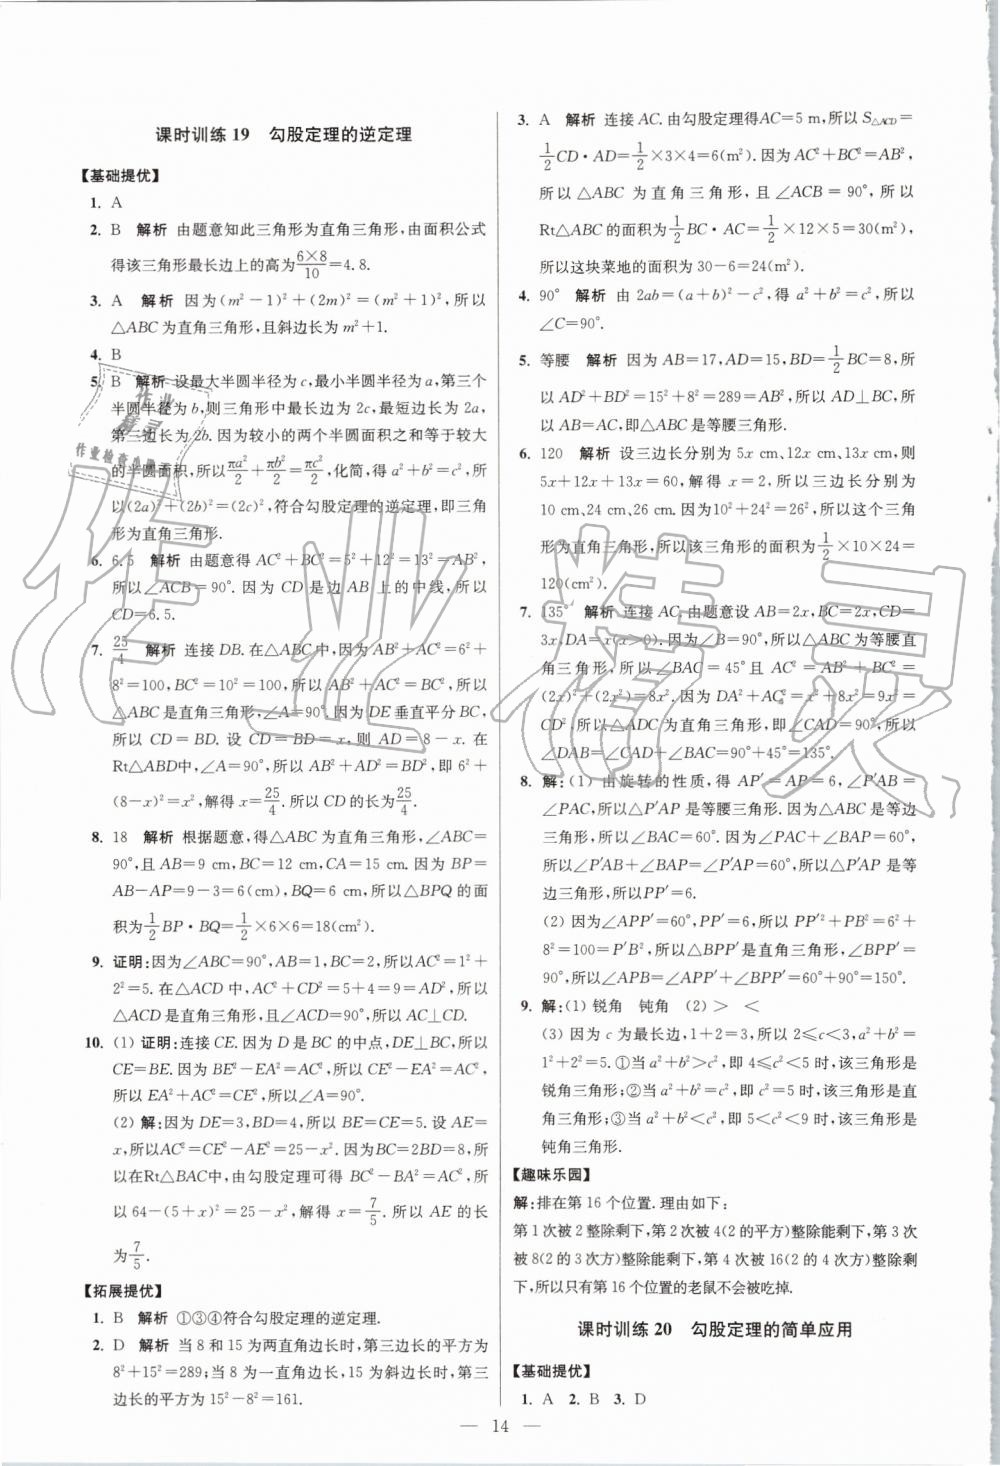 课时训练 19 勾股定理的逆定理
【基础提优】
1. A
2. B 解析 由题意知此三角形为直角三角形,由面积公式
得该三角形最长边上的高为6×8/10=4.8.
3. A 解析 因为(m²-1)²+(2m)²=(m²+1)²,所以
△ABC为直角三角形,且斜边长为m²+1.
4. B
5. B 解析 设最大半圆半径为c,最小半圆半径为a,第三个
半圆半径为b,则三角形中最长边为2c,最短边长为2a,
第三边长为2b.因为较小的两个半圆面积之和等于较大
的半圆面积,所以πa²/2+πb²/2=πc²/2,化简,得a²+b²=c²,所
以(2a)²+(2b)²=(2c)²,符合勾股定理的逆定理,即三角
形为直角三角形.
6. 6.5 解析 由题意得AC²+BC²=5²+12²=13²=AB²,
所以∠ACB=90°.因为CD是边AB上的中线,所以
CD=6.5.
7. 25/4 解析 连接DB.在△ABC中,因为AB²+AC²=6²+
8²=100,BC²=10²=100,所以AB²+AC²=BC²,所以
△ABC是直角三角形,∠A=90°.因为DE垂直平分BC,
所以CD=BD.设CD=BD=x,则AD=8-x.在
Rt△ABD中,∠A=90°,所以AB²+AD²=BD²,即6²+
(8-x)²=x²,解得x=25/4.所以CD的长为25/4.
8. 18 解析 根据题意,得△ABC为直角三角形,∠ABC=
90°,且AB=9 cm,BC=12 cm,CA=15 cm.因为BP=
AB-AP=9-3=6(cm),BQ=6 cm,所以△BPQ的面
积为1/2BP·BQ=1/2×6×6=18(cm²).
9. 证明:因为∠ABC=90°,AB=1,BC=2,所以AC²=1²+
2²=5.在△ACD中,AC²+CD²=5+4=9=AD²,所以
△ACD是直角三角形,且∠ACD=90°,所以AC⊥CD.
10. (1) 证明:连接CE.因为D是BC的中点,DE⊥BC,所以
CE=BE.因为BE²-EA²=AC²,所以CE²-EA²=AC²,
所以EA²+AC²=CE²,所以∠A=90°.
(2) 解:因为DE=3,BD=4,所以BE=CE=5.设AE=
x,所以AC²=CE²-AE²=25-x².因为BC=2BD=8,所
以在Rt△BAC中,由勾股定理可得BC²-BA²=AC²,所
以64-(5+x)²=25-x²,解得x=7/5.所以AE的长
为7/5.
【拓展提优】
1. B 解析 ①③④符合勾股定理的逆定理.
2. D 解析 当8和15为两直角边长时,第三边长的平方为
8²+15²=289;当8为一直角边长,15为斜边长时,第三
边长的平方为15²-8²=161.
3. A 解析 连接AC.由勾股定理得AC=5 m,所以S△ACD=
1/2CD·AD=1/2×3×4=6(m²).因为AC²+BC²=AB²,
所以△ABC为直角三角形,且∠ACB=90°,所以
Rt△ABC的面积为1/2BC·AC=1/2×12×5=30(m²),
所以这块菜地的面积为30-6=24(m²).
4. 90° 解析 由2ab=(a+b)²-c²,得a²+b²=c²,所以
∠C=90°.
5. 等腰 解析 因为AB=17,AD=15,BD=1/2BC=8,所
以AD²+BD²=15²+8²=289=AB²,所以AD⊥BC,所
以AB=AC,即△ABC是等腰三角形.
6. 120 解析 设三边长分别为5x cm、12x cm、13x cm,则
5x+12x+13x=60,解得x=2,所以三边长分别为
10 cm、24 cm、26 cm.因为10²+24²=26²,所以这个三角
形为直角三角形,所以该三角形的面积为1/2×10×24=
120(cm²).
7. 135° 解析 连接AC.由题意设AB=2x,BC=2x,CD=
3x,DA=x(x>0).因为∠B=90°,所以△ABC为等腰直
角三角形,所以∠BAC=45°且AC²=AB²+BC²=
(2x)²+(2x)²=8x².因为DA²+AC²=x²+8x²=9x²=
CD²,所以△ADC为直角三角形,即∠CAD=90°,所以
∠DAB=∠CAD+∠BAC=90°+45°=135°.
8. 解:(1) 由旋转的性质,得AP′=AP=6,∠P′AB=
∠PAC,所以△P′AP是等腰三角形.因为△ABC是等边
三角形,所以∠BAC=60°.因为∠PAC+∠BAP=60°,
所以∠P′AB+∠BAP=∠P′AP=60°,所以△P′AP是等
边三角形,所以PP′=6.
(2) 因为∠APP′=60°,PP′=6,所以PP′²+PB²=6²+
8²=100=P′B²,所以△BPP′是直角三角形,∠BPP′=
90°,所以∠APB=∠APP′+∠BPP′=60°+90°=150°.
9. 解:(1) 锐角 钝角 (2) > <
(3) 因为c为最长边,1+2=3,所以2≤c<3,a²+b²=
1²+2²=5.①当a²+b²>c²,即4≤c²<5时,该三角形是
锐角三角形;②当a²+b²=c²,即c²=5时,该三角形是直
角三角形;③当a²+b²<c²,即5<c²<9时,该三角形是
钝角三角形.
【趣味乐园】
解:排在第16个位置.理由如下:
第1次被2整除剩下,第2次被4(2的平方)整除能剩下,第3次
被8(2的3次方)整除能剩下,第4次被16(2的4次方)整除剩
下,所以只有第16个位置的老鼠不会被吃掉.
课时训练 20 勾股定理的简单应用
【基础提优】
1. A 2. B 3. D
— 14 —
作业精灵